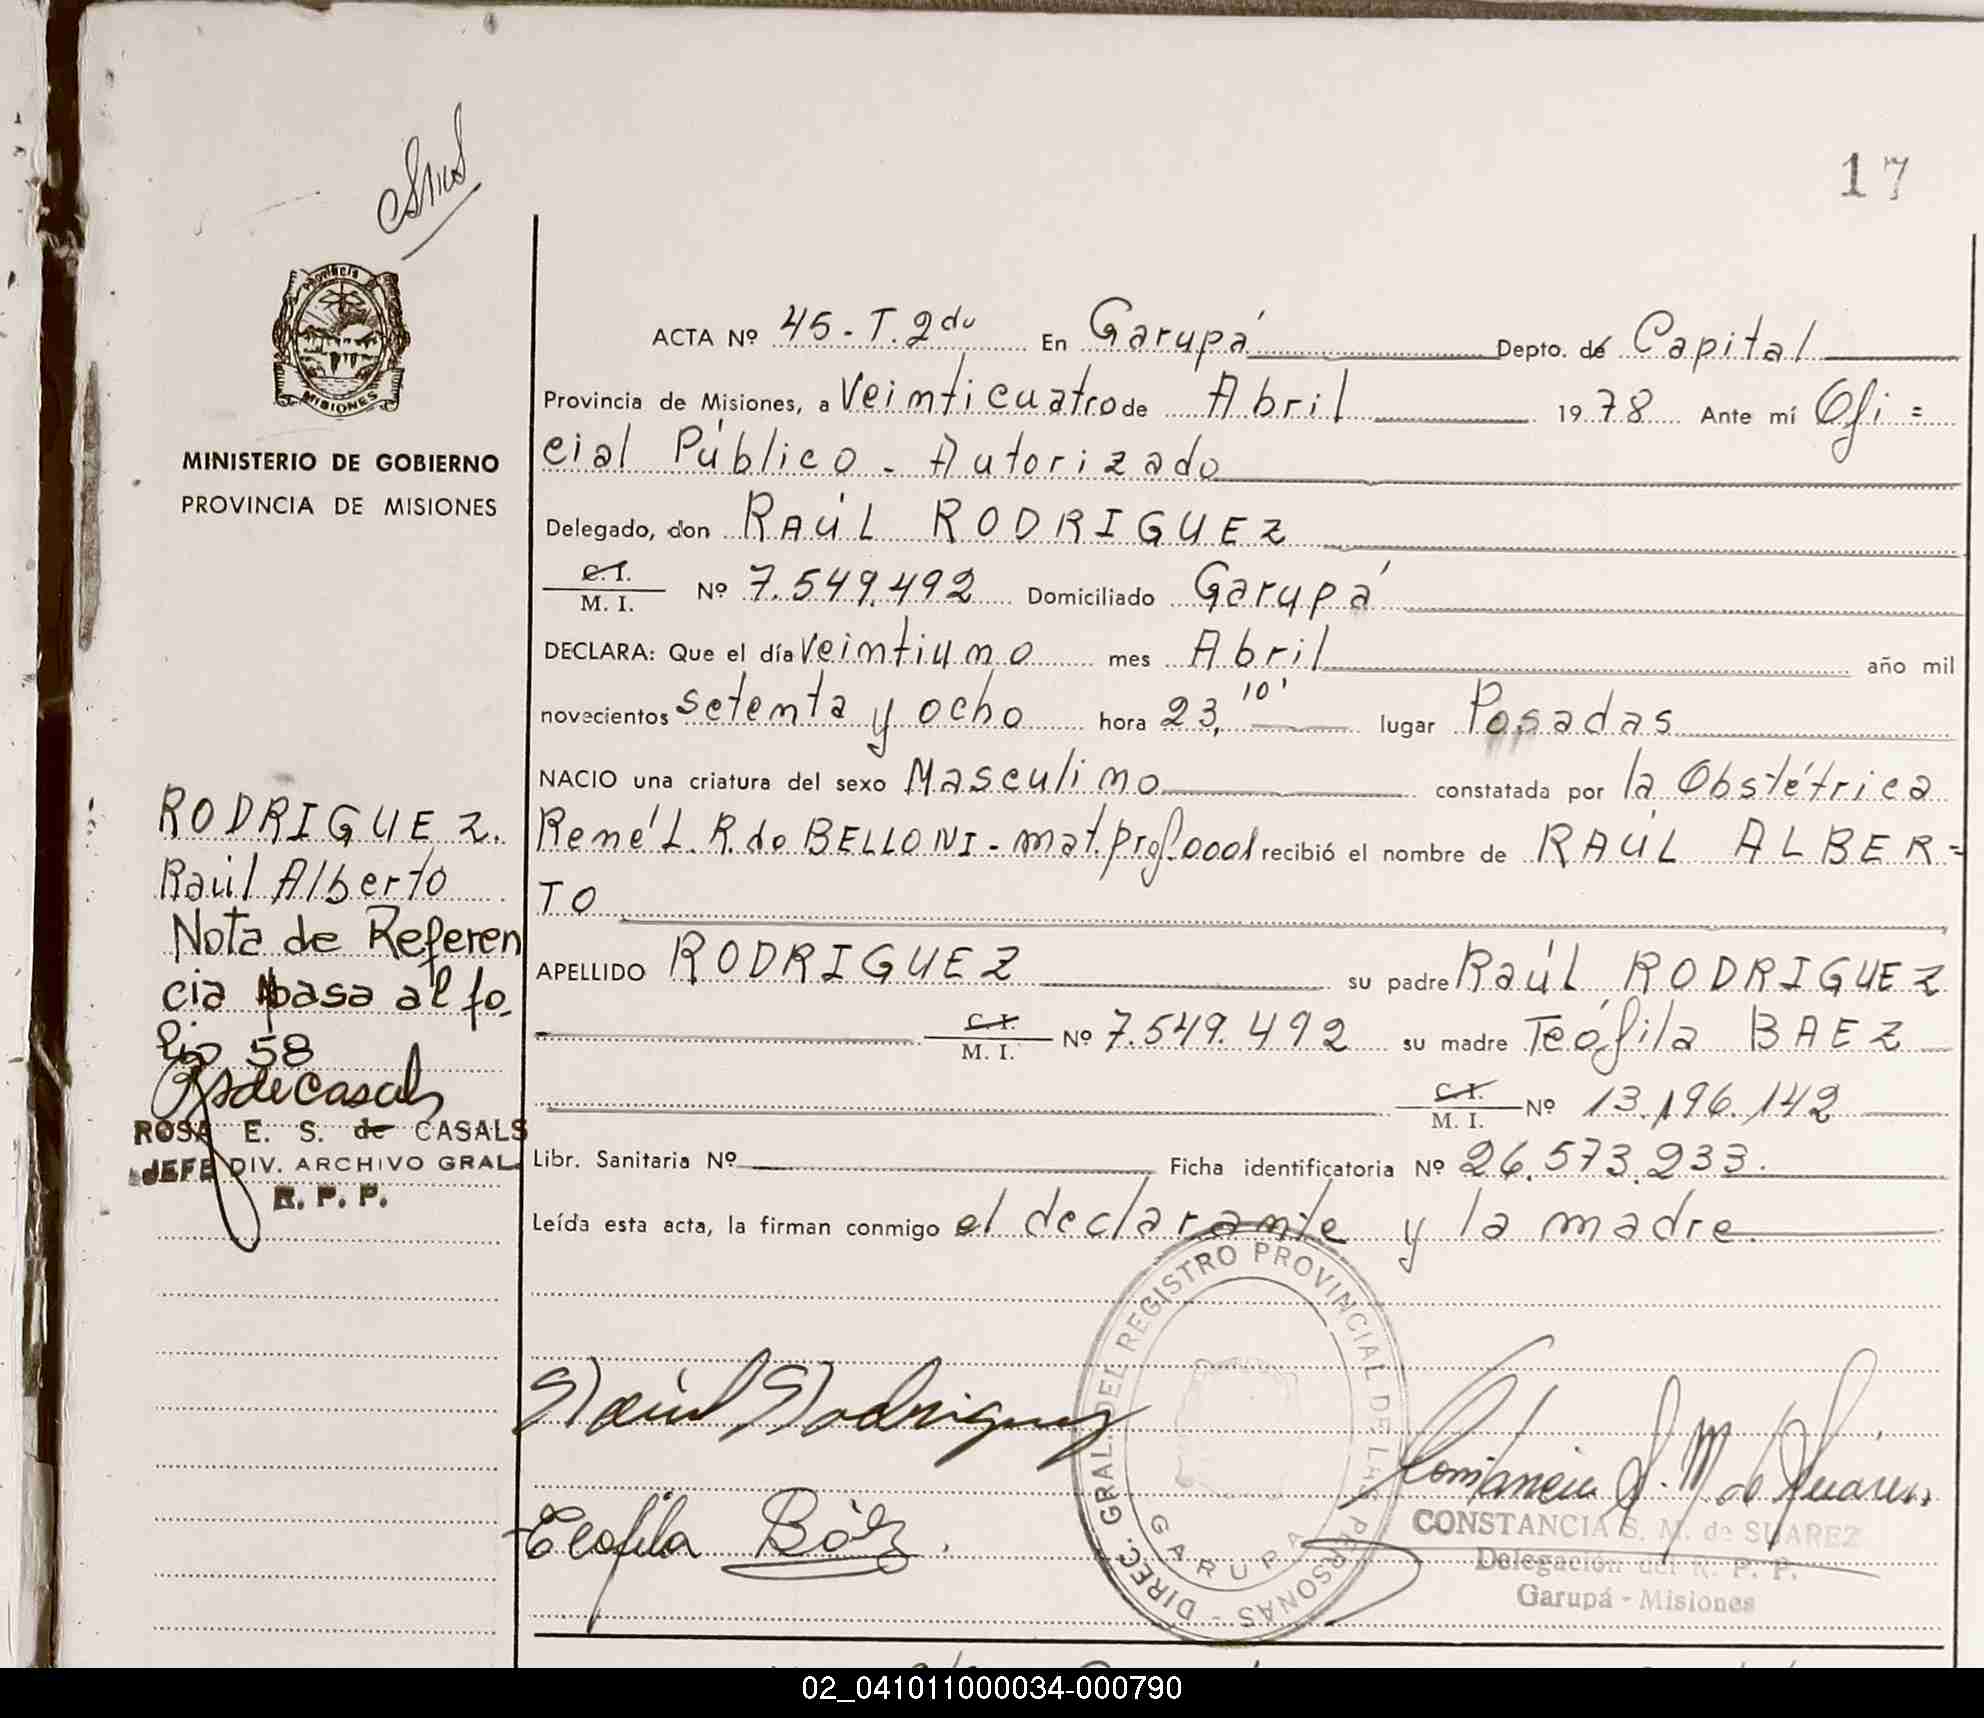 17
Provincia
MISIONES
MINISTERIO DE GOBIERNO
PROVINCIA DE MISIONES
ACTA Nº 45 - T. 2do En Garupá Depto. de Capital
Provincia de Misiones, a Veinticuatro de Abril 1978 Ante mí Ofi=
cial Público - Autorizado
Delegado, don RAÚL RODRIGUEZ
C. I.
M. I. Nº 7.549.492 Domiciliado Garupá
DECLARA: Que el día Veintiuno mes Abril año mil
novecientos setenta y ocho hora 23,10' lugar Posadas
NACIO una criatura del sexo Masculino constatada por la Obstétrica
René L. R. de BELLONI - mat. prof. 0001 recibió el nombre de RAÚL ALBER=
TO
APELLIDO RODRIGUEZ su padre Raúl RODRIGUEZ
C. I.
M. I. Nº 7.549.492 su madre Teófila BAEZ
C. I.
M. I. Nº 13.196.142
Libr. Sanitaria Nº Ficha identificatoria Nº 26.573.233.
Leída esta acta, la firman conmigo el declarante y la madre.
RODRIGUEZ.
Raúl Alberto
Nota de Referen
cia pasa al fo-
lio 58
RSdeCasals
ROSA E. S. de CASALS
JEFE DIV. ARCHIVO GRAL.
R. P. P.
Raúl Rodriguez
Teofila Báez.
DIREC. GRAL. DEL REGISTRO PROVINCIAL DE LAS PERSONAS -
GARUPA
Constancia S. M. de Suárez
CONSTANCIA S. M. de SUAREZ
Delegación del R. P. P.
Garupá - Misiones
02_041011000034-000790